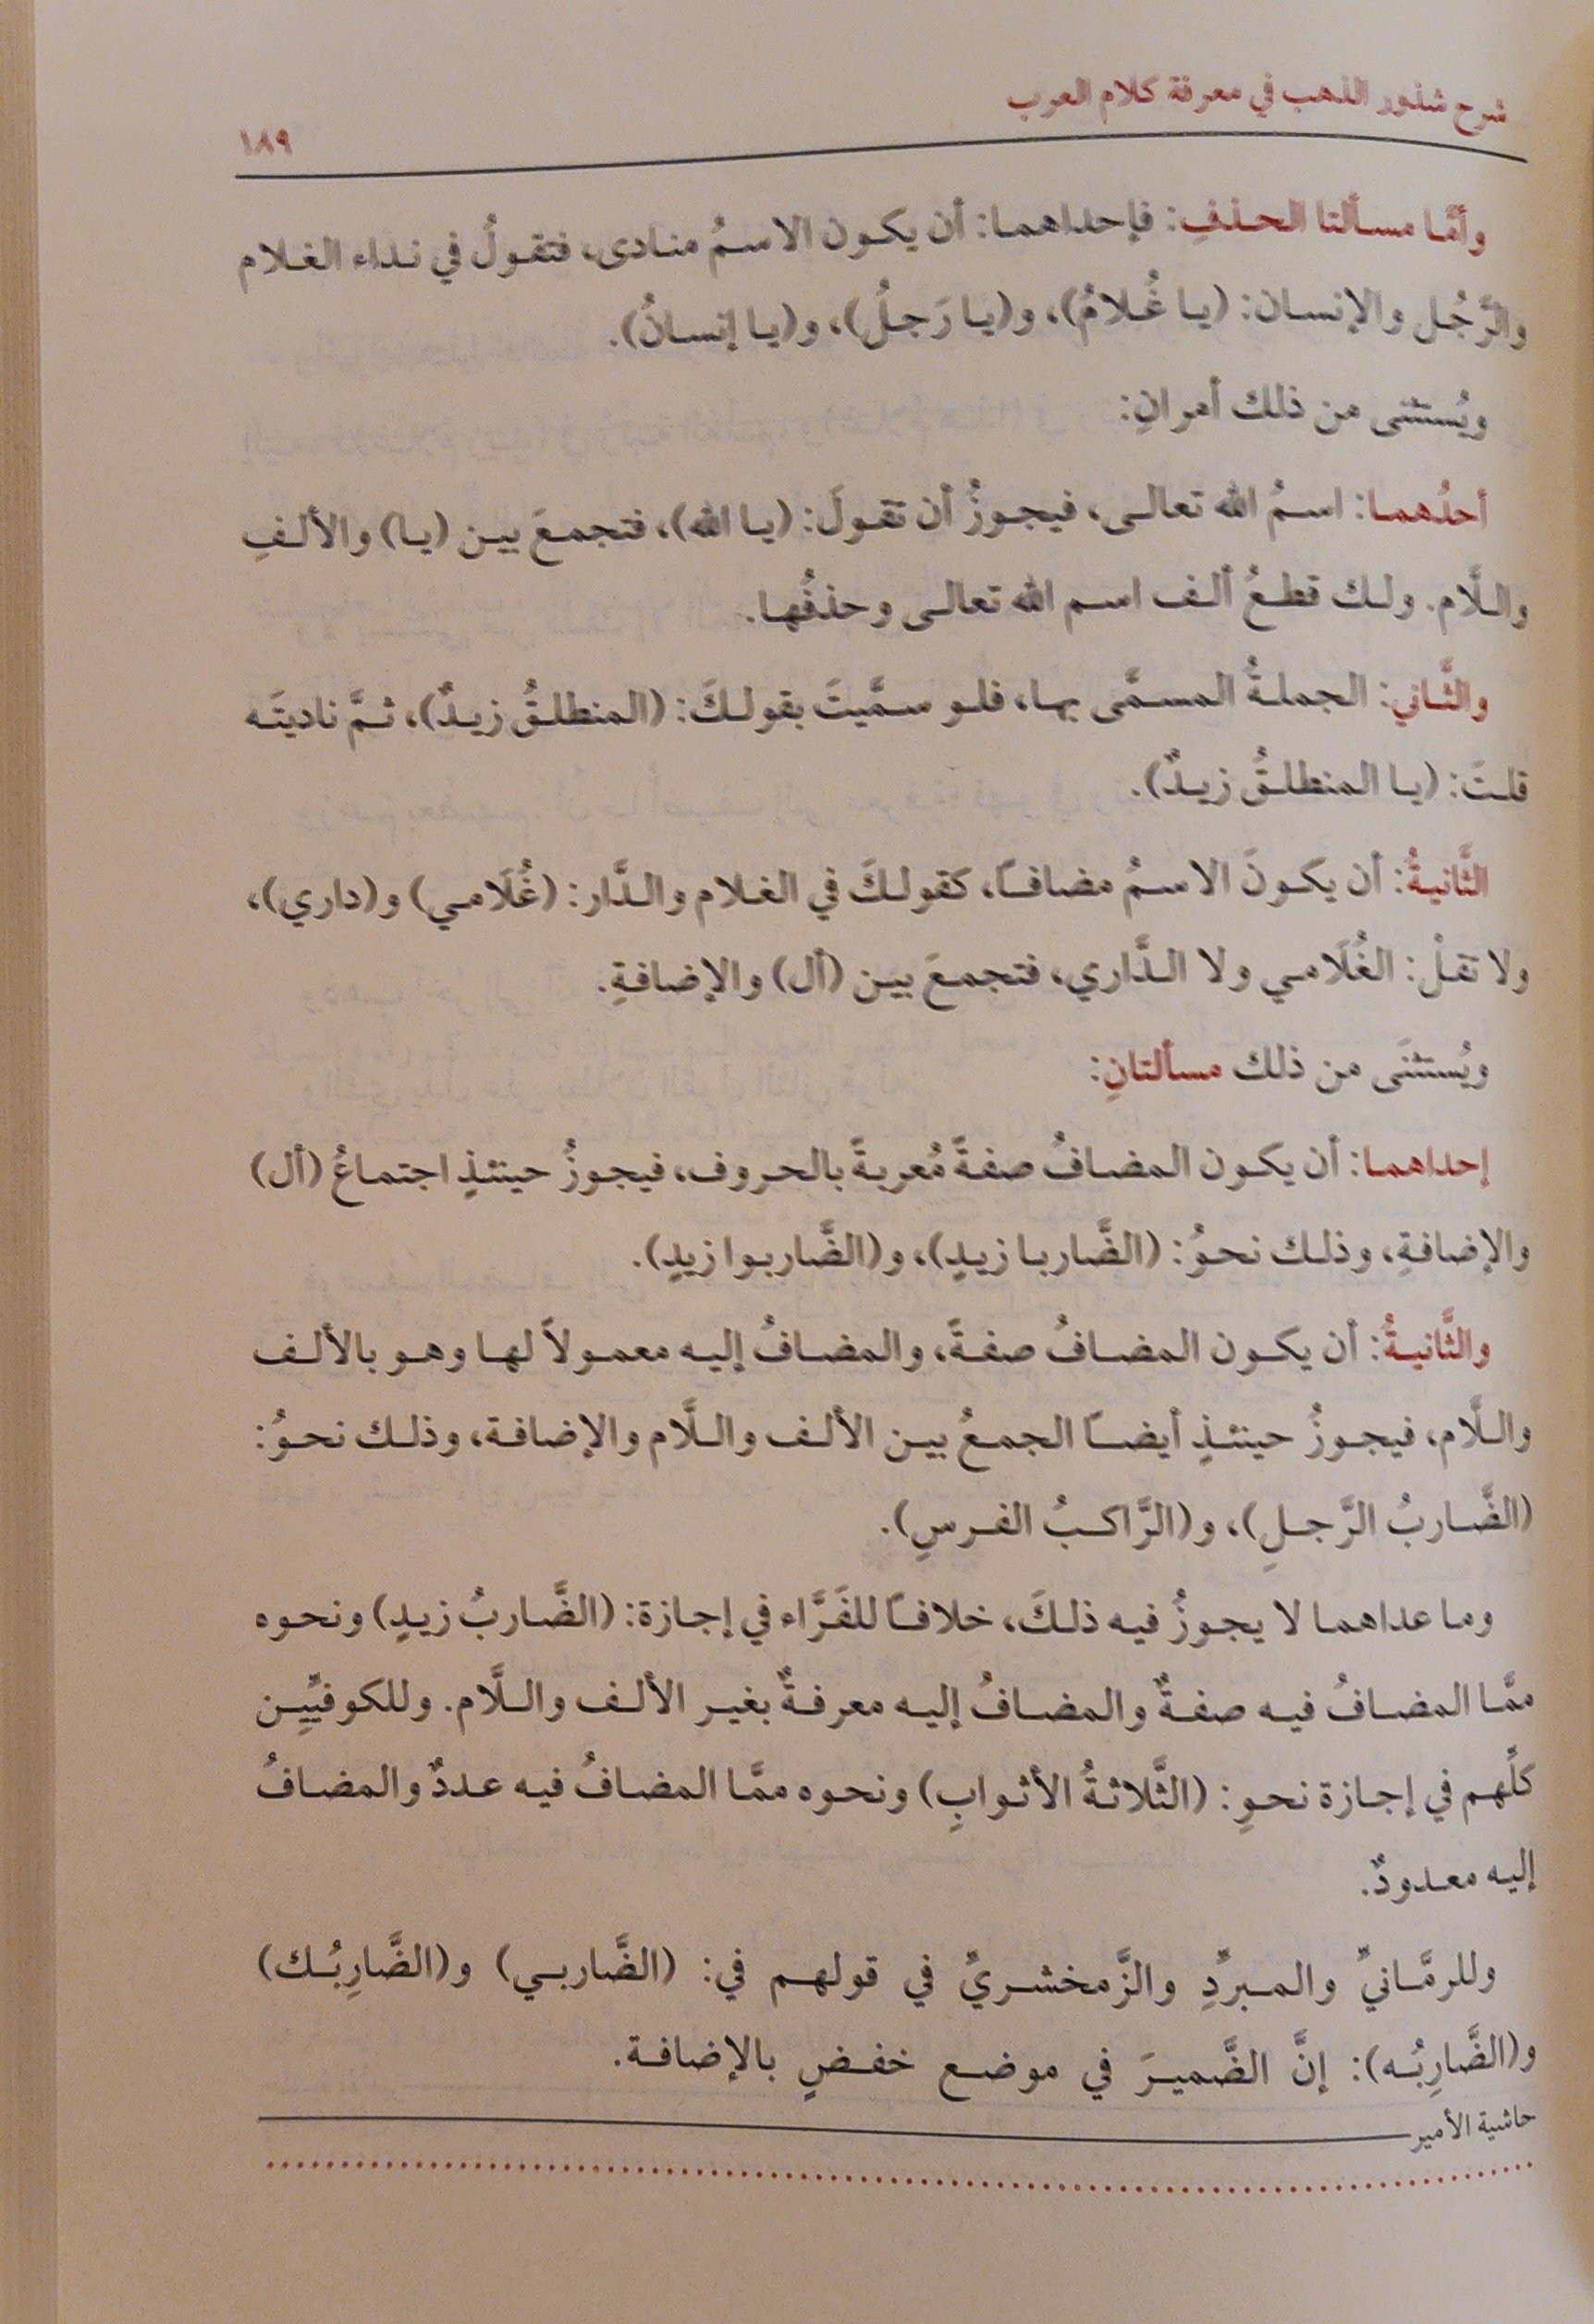 شرح شذور الذهب في معرفة كلام العرب
١٨٩
وأمَّا مسألتا الحذفِ: فإحداهما: أن يكون الاسمُ منادى، فتقولُ في نداء الغلام
والرَّجُل والإنسان: (يا غُلامُ)، و(يا رَجلُ)، و(يا إنسانُ).
ويُستثنى من ذلك أمرانِ:
أحدُهما: اسمُ الله تعالى، فيجوزُ أن تقولَ: (يا الله)، فتجمعَ بين (يا) والألفِ
واللَّام. ولك قطعُ ألف اسم الله تعالى وحذفُها.
والثَّاني: الجملةُ المسمَّى بها، فلو سمَّيتَ بقولكَ: (المنطلقُ زيدٌ)، ثمَّ ناديتَه
قلتَ: (يا المنطلقُ زيدٌ).
الثَّانيةُ: أن يكونَ الاسمُ مضافًا، كقولكَ في الغلام والدَّار: (غُلَامي) و(داري)،
ولا تقلْ: الغُلَامي ولا الدَّاري، فتجمعَ بين (أل) والإضافةِ.
ويُستثنَى من ذلك مسألتانِ:
إحداهما: أن يكون المضافُ صفةً مُعربةً بالحروف، فيجوزُ حينئذٍ اجتماعُ (أل)
والإضافةِ، وذلك نحوُ: (الضَّاربا زيدٍ)، و(الضَّاربوا زيدٍ).
والثَّانيةُ: أن يكون المضافُ صفةً، والمضافُ إليه معمولاً لها وهو بالألف
واللَّام، فيجوزُ حينئذٍ أيضًا الجمعُ بين الألف واللَّام والإضافة، وذلك نحوُ:
(الضَّاربُ الرَّجلِ)، و(الرَّاكبُ الفرسِ).
وما عداهما لا يجوزُ فيه ذلكَ، خلافًا للفَرَّاء في إجازة: (الضَّاربُ زيدٍ) ونحوه
ممَّا المضافُ فيه صفةٌ والمضافُ إليه معرفةٌ بغير الألف واللَّام. وللكوفيِّين
كلِّهم في إجازة نحوِ: (الثَّلاثةُ الأثوابِ) ونحوه ممَّا المضافُ فيه عددٌ والمضافُ
إليه معدودٌ.
وللرمَّانيِّ والمبرِّدِ والزَّمخشريِّ في قولهم في: (الضَّاربي) و(الضَّارِبُك)
و(الضَّارِبُه): إنَّ الضَّميرَ في موضع خفضٍ بالإضافة.
حاشية الأمير